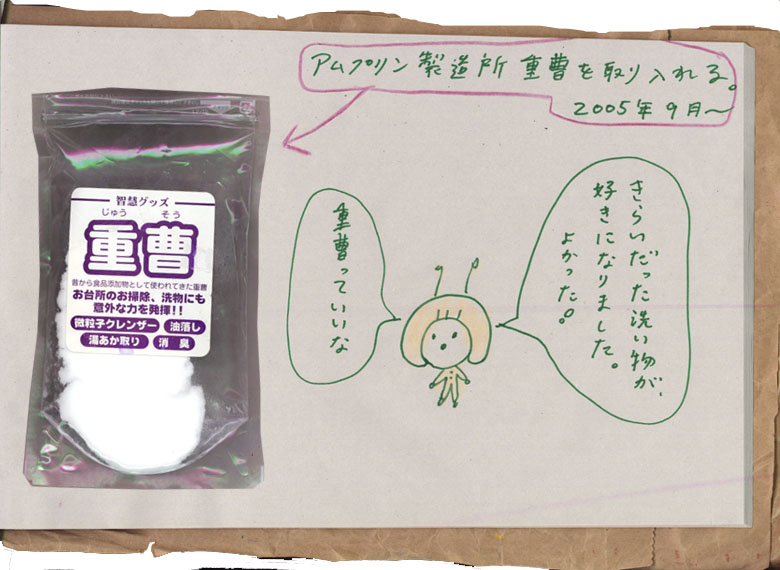 アムプリン製造所 重曹を取り入れる。
2005年9月〜
智慧グッズ
じゅう そう
重曹
昔から食品添加物として使われてきた重曹
お台所のお掃除、洗物にも
意外な力を発揮!!
微粒子クレンザー 油落し
湯あか取り 消臭
きらいだった洗い物が、
好きになりました。
よかった。
重曹っていいな